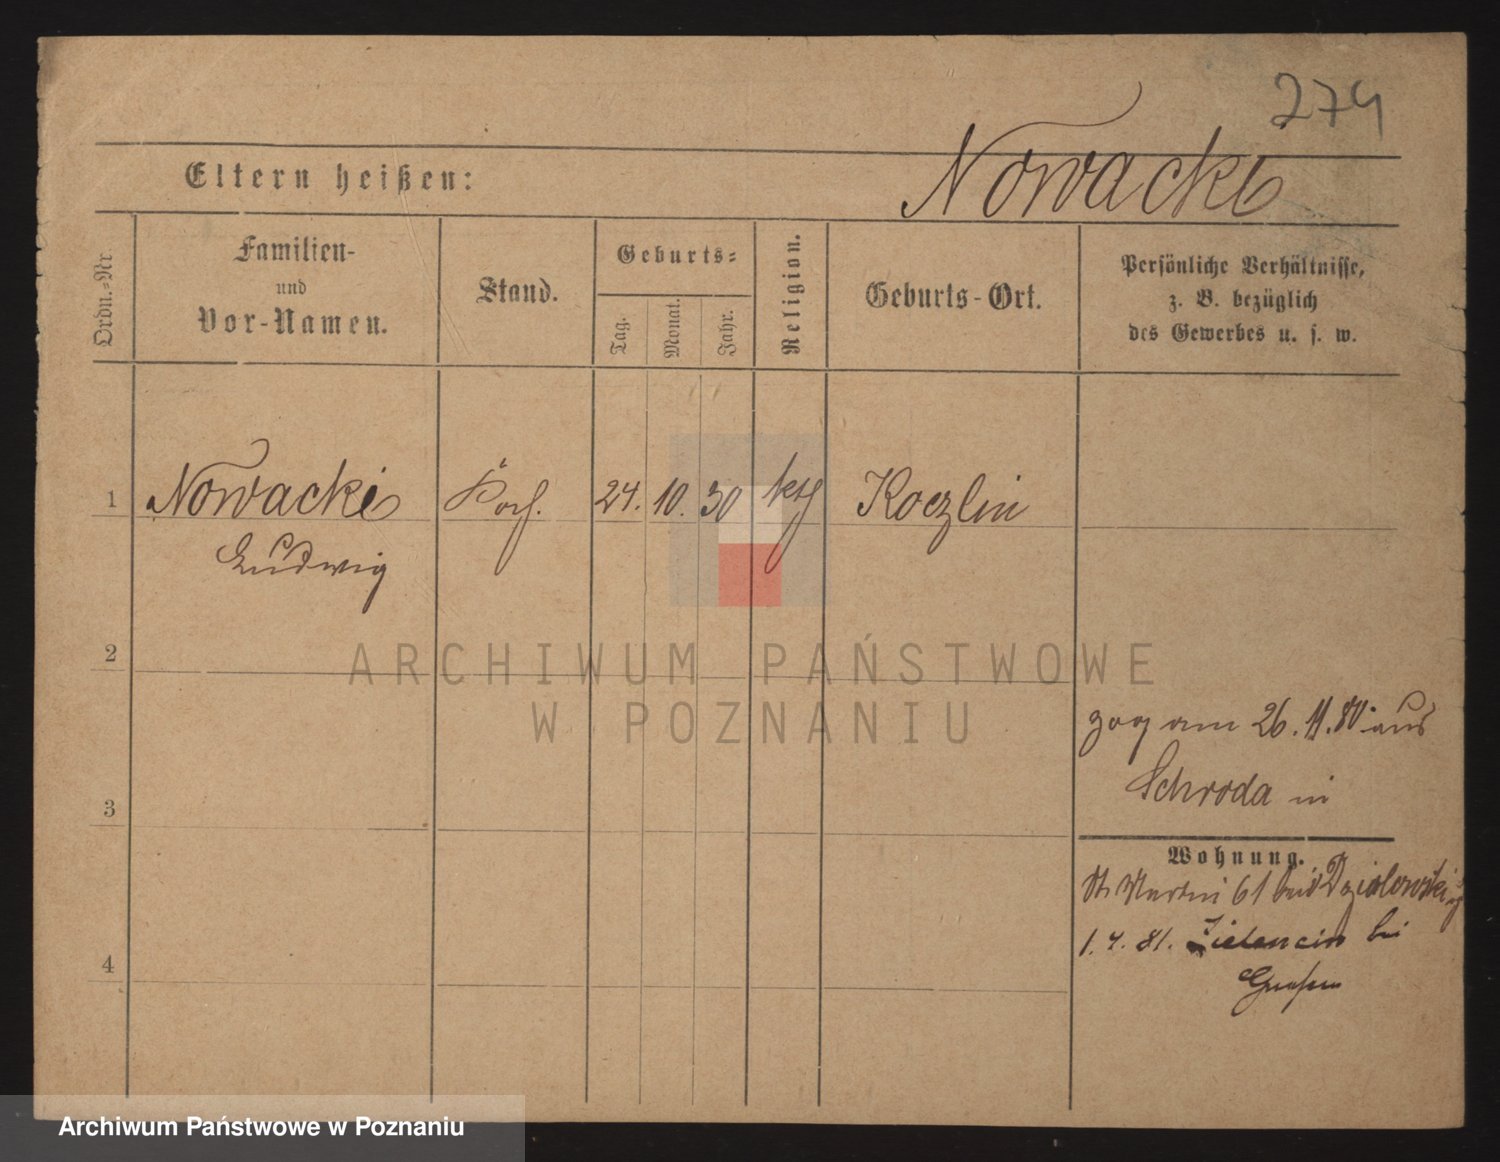 274
Eltern heißen:
Nowacki
Ordn.-Nr.
Familien-
und
Vor-Namen.
Stand.
Geburts=
Tag.
Monat.
Jahr.
Religion.
Geburts-Ort.
Persönliche Verhältnisse,
z. B. bezüglich
des Gewerbes u. s. w.
1
Nowacki
Ludwig
24. 10. 30
kth
Koczlin
2
ARCHIWUM PAŃSTWOWE
W POZNANIU
zog am 26. 11. 80. aus
Schroda in
3
Wohnung.
St. Martin 61 bei
1. 4. 81. bei
Gnesen
4
Archiwum Państwowe w Poznaniu